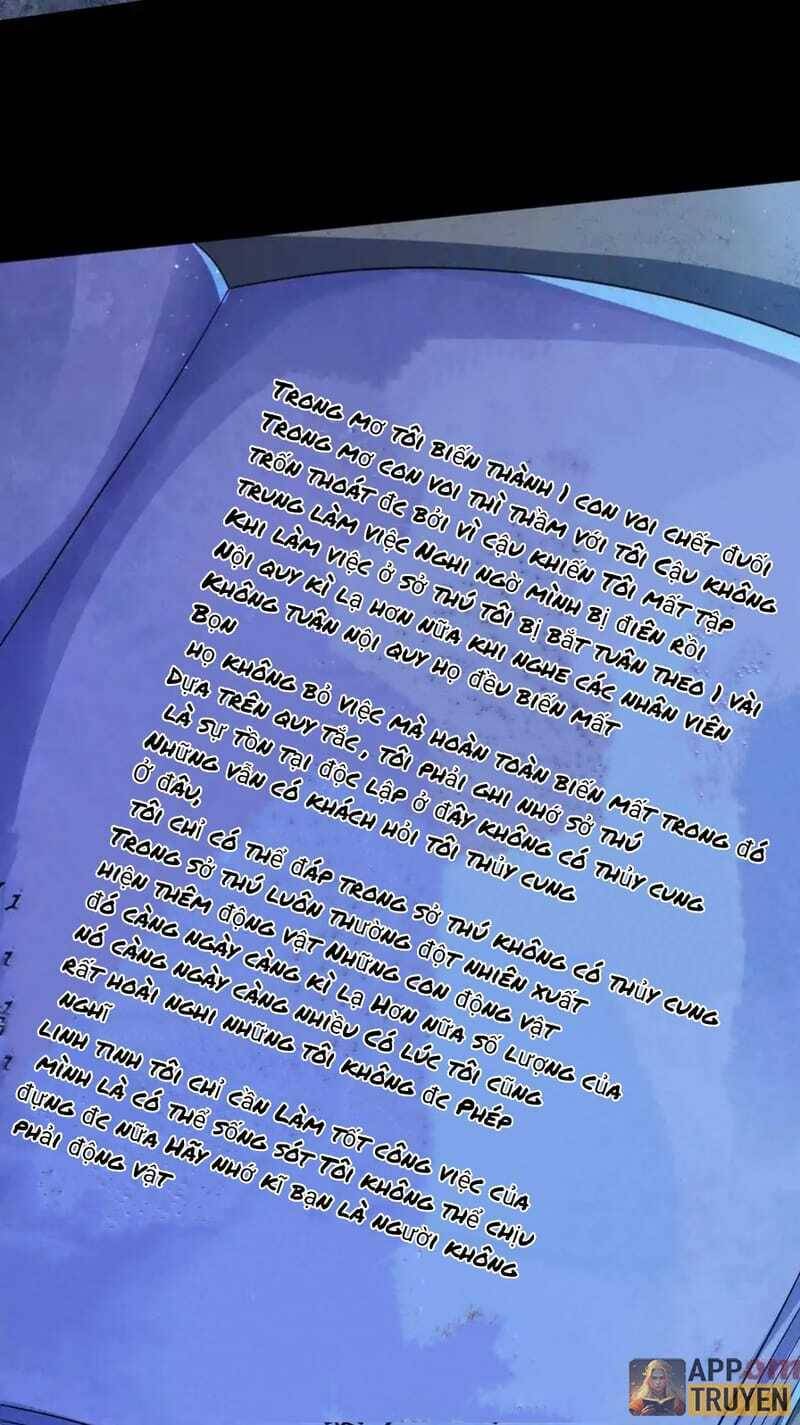 Trong mơ tôi biến thành 1 con voi chết đuối
Trong mơ con voi thì thầm với tôi cậu không
trốn thoát đc bởi vì cậu khiến tôi mất tập
trung làm việc nghi ngờ mình bị điên rồi
Khi làm việc ở sở thú tôi bị bắt tuân theo 1 vài
nội quy kì lạ hơn nữa khi nghe các nhân viên
không tuân nội quy họ đều biến mất
Bọn
họ không bỏ việc mà hoàn toàn biến mất trong đó
Dựa trên quy tắc, tôi phải ghi nhớ sở thú
là sự tồn tại độc lập ở đây không có thủy cung
Những vẫn có khách hỏi tôi thủy cung
ở đâu,
Tôi chỉ có thể đáp trong sở thú không có thủy cung
Trong sở thú luôn thường đột nhiên xuất
hiện thêm động vật Những con động vật
đó càng ngày càng kì lạ Hơn nữa số lượng của
nó càng ngày càng nhiều Có lúc tôi cũng
rất hoài nghi những tôi không đc phép
nghĩ
linh tinh tôi chỉ cần làm tốt công việc của
mình là có thể sống sót Tôi không thể chịu
đựng đc nữa Hãy nhớ kĩ bạn là người không
phải động vật
APPOM
TRUYEN